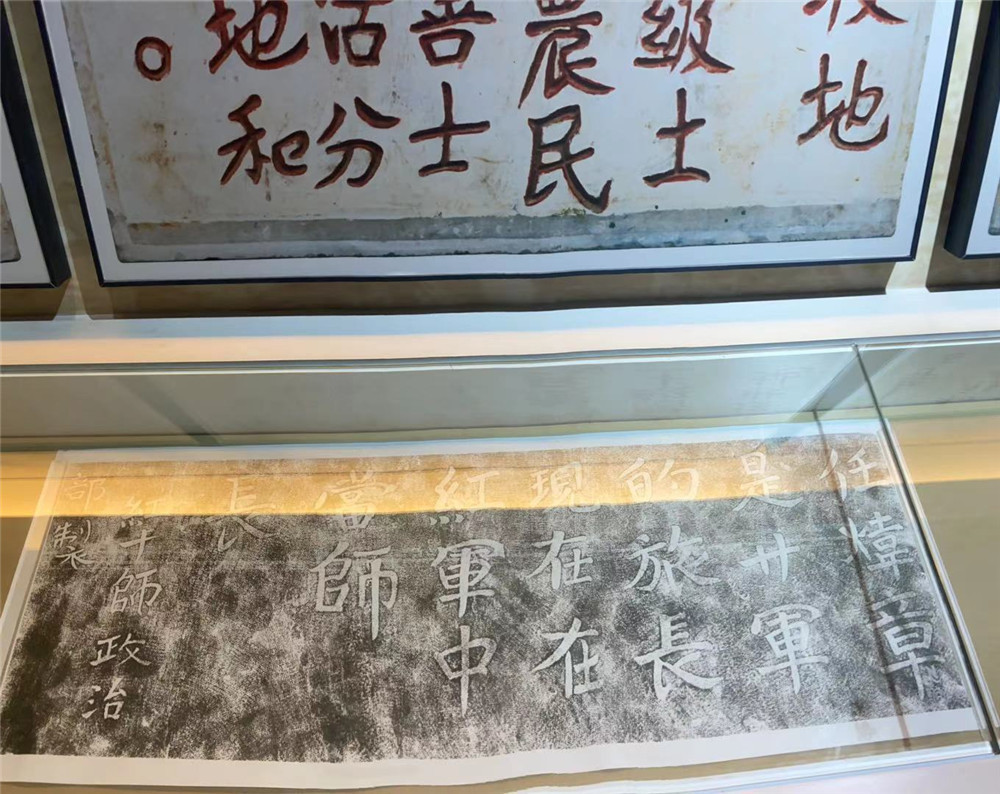 地
级土
農民
善士
活分
地和
。
任煒章
是廿軍
的旅長
現在在
紅軍中
當師
長
紅十師政治
部製